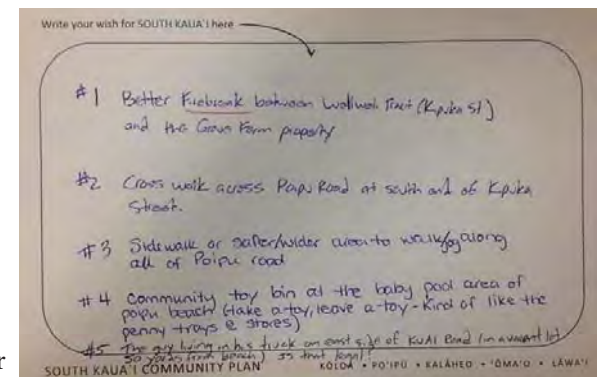 Write your wish for SOUTH KAUA'I here
#1 Better Firebreak between Weliweli Tract (Kipuka St)
and the Grove Farm property
#2 Cross walk across Papu Road at south end of Kipuka
Street.
#3 Sidewalk or safer/wider area to walk/jog along
all of Poipu road
#4 Community toy bin at the baby pool area of
poipu beach (take a toy, leave a toy - Kind of like the
penny trays @ stores)
#5 The guy living in his truck on east side of Kuai Road (in a vacant lot
50 yards from beach) is that legal?
SOUTH KAUA'I COMMUNITY PLAN KŌLOA • PO'IPŪ • KALĀHEO • 'ŌMA'O • LĀWA'I
r